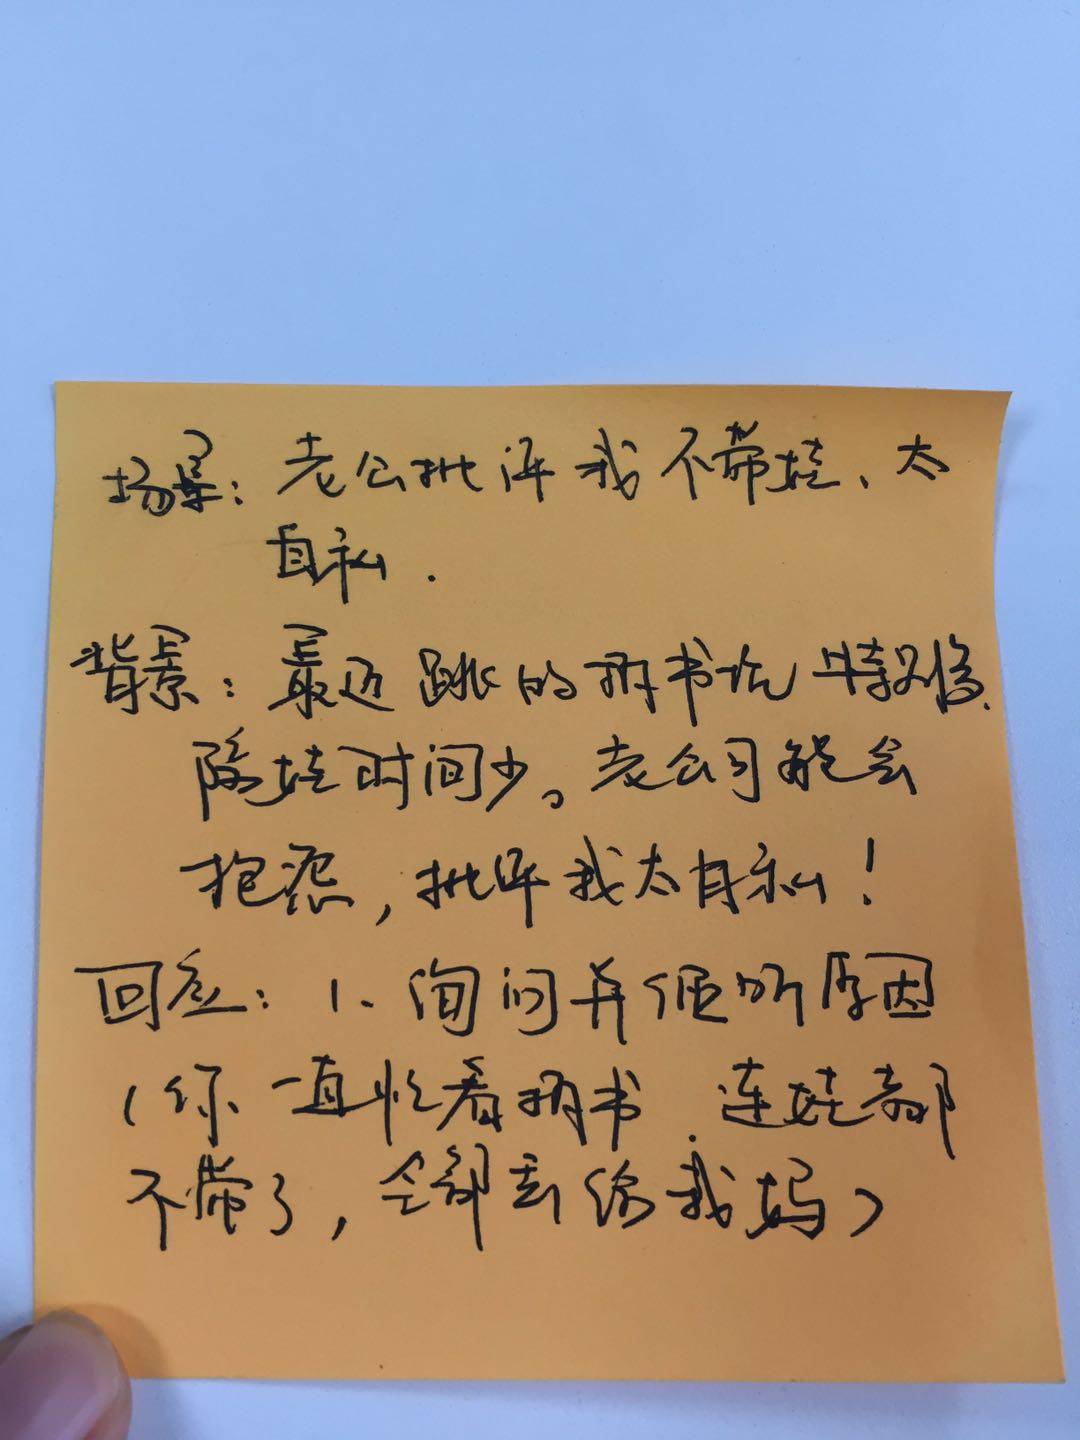 场景：老公批评我不带娃、太
自私.
背景：最近跳的拆书坑特别多、
陪娃时间少。老公可能会
抱怨，批评我太自私！
回应：1、询问并倾听原因
（你一直忙着拆书、连娃都
不带了，全部丢给我妈）